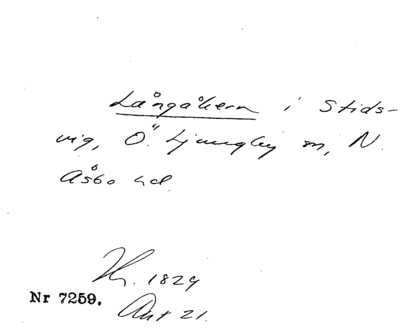 Långåkern i Stids-
vig, Ö. Ljungby sn, N.
Åsbo hd.
1829
Nr 7259.
Akt 21.